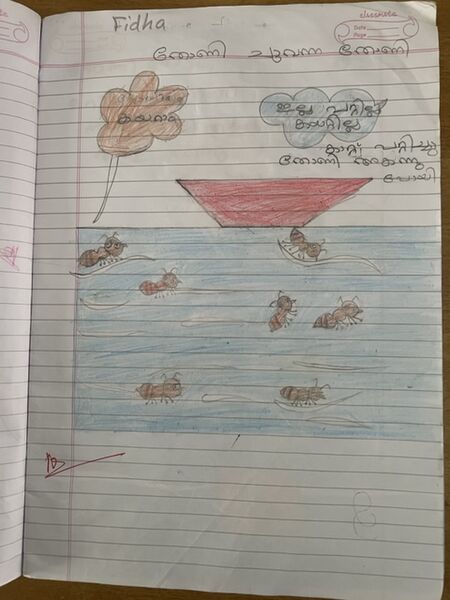 Fidha
classmate
Date
Page
തോണി ചുവന്ന തോണി
കയറാം
ഇല്ല പറ്റില്ല
കയറ്റില്ല
കാറ്റ് പറ്റിച്ചു
തോണി അകന്നു
പോയി